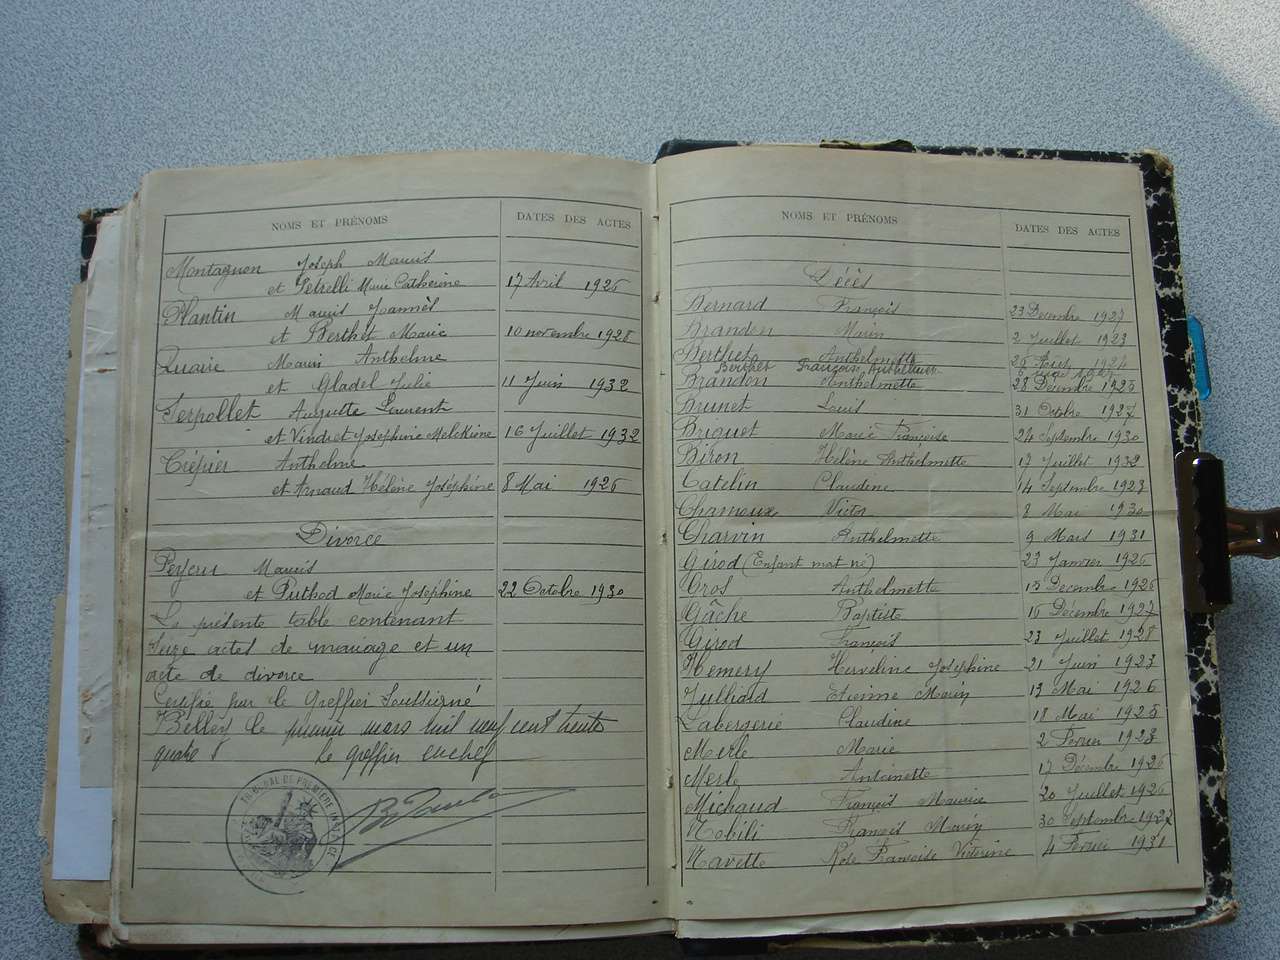 NOMS ET PRÉNOMS DATES DES ACTES
Montagnon Joseph Marius
et Petrelli Marie Catherine 17 Avril 1926
Plantin Marius Joannès
et Berthet Marie 10 novembre 1928
Quaire Marin Anthelme
et Gladel Julie 11 Juin 1932
Serpollet Auguste Laurent
et Vindret Joséphine Melchine 16 Juillet 1932
Crépier Anthelme
et Arnaud Hélène Joséphine 8 Mai 1926
Divorce
Marius
et Puthod Marie Joséphine 22 Octobre 1930
La présente table contenant
Seize actes de mariage et un
acte de divorce
Certifié par le Greffier Soussigné
Belley le premier mars mil neuf cent trente
quatre Le greffier en chef
TRIBUNAL DE PREMIÈRE INSTANCE
NOMS ET PRÉNOMS DATES DES ACTES
Décès
Bernard François 23 Décembre 1927
Brandon Marin 2 Juillet 1923
Berthet Anthelmette 26 1924
Berthet François
Brandon Anthelmette 28 Décembre 1925
Brunet Louis 31 Octobre 1927
Briguet Marie Françoise 24 Septembre 1930
Biron Hélène Anthelmette 17 Juillet 1932
Catelin Claudene 14 Septembre 1923
Chamoux Victor 8 Mai 1930
Charvin Anthelmette 9 Mars 1931
Girod (Enfant mort né) 23 Janvier 1926
Gros Anthelmette 15 Décembre 1926
Gâche Baptiste 16 Décembre 1927
Girod François 23 Juillet 1928
Hemery Herveline Joséphine 21 Juin 1923
Julliard Etienne Marin 19 Mai 1926
Labergerie Claudine 18 Mai 1925
Merle Marie 2 Février 1923
Merle Antoinette 17 Décembre 1926
Michaud François Maurice 20 Juillet 1926
Nobili François 30 Septembre 1927
Navette Rose Françoise Victorine 4 Février 1931